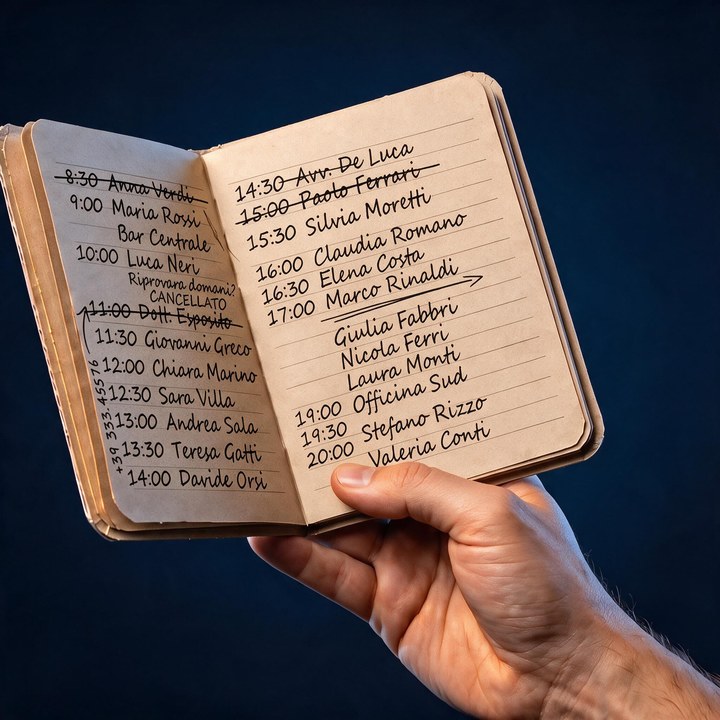 8:30 Anna Verdi
9:00 Maria Rossi
Bar Centrale
10:00 Luca Neri
Riprovara domani?
CANCELLATO
11:00 Dott. Esposito
11:30 Giovanni Greco
12:00 Chiara Marino
12:30 Sara Villa
13:00 Andrea Sala
13:30 Teresa Gatti
14:00 Davide Orsi
+39 333.45576
14:30 Avv. De Luca
15:00 Paolo Ferrari
15:30 Silvia Moretti
16:00 Claudia Romano
16:30 Elena Costa
17:00 Marco Rinaldi
Giulia Fabbri
Nicola Ferri
Laura Monti
19:00 Officina Sud
19:30 Stefano Rizzo
20:00 Valeria Conti